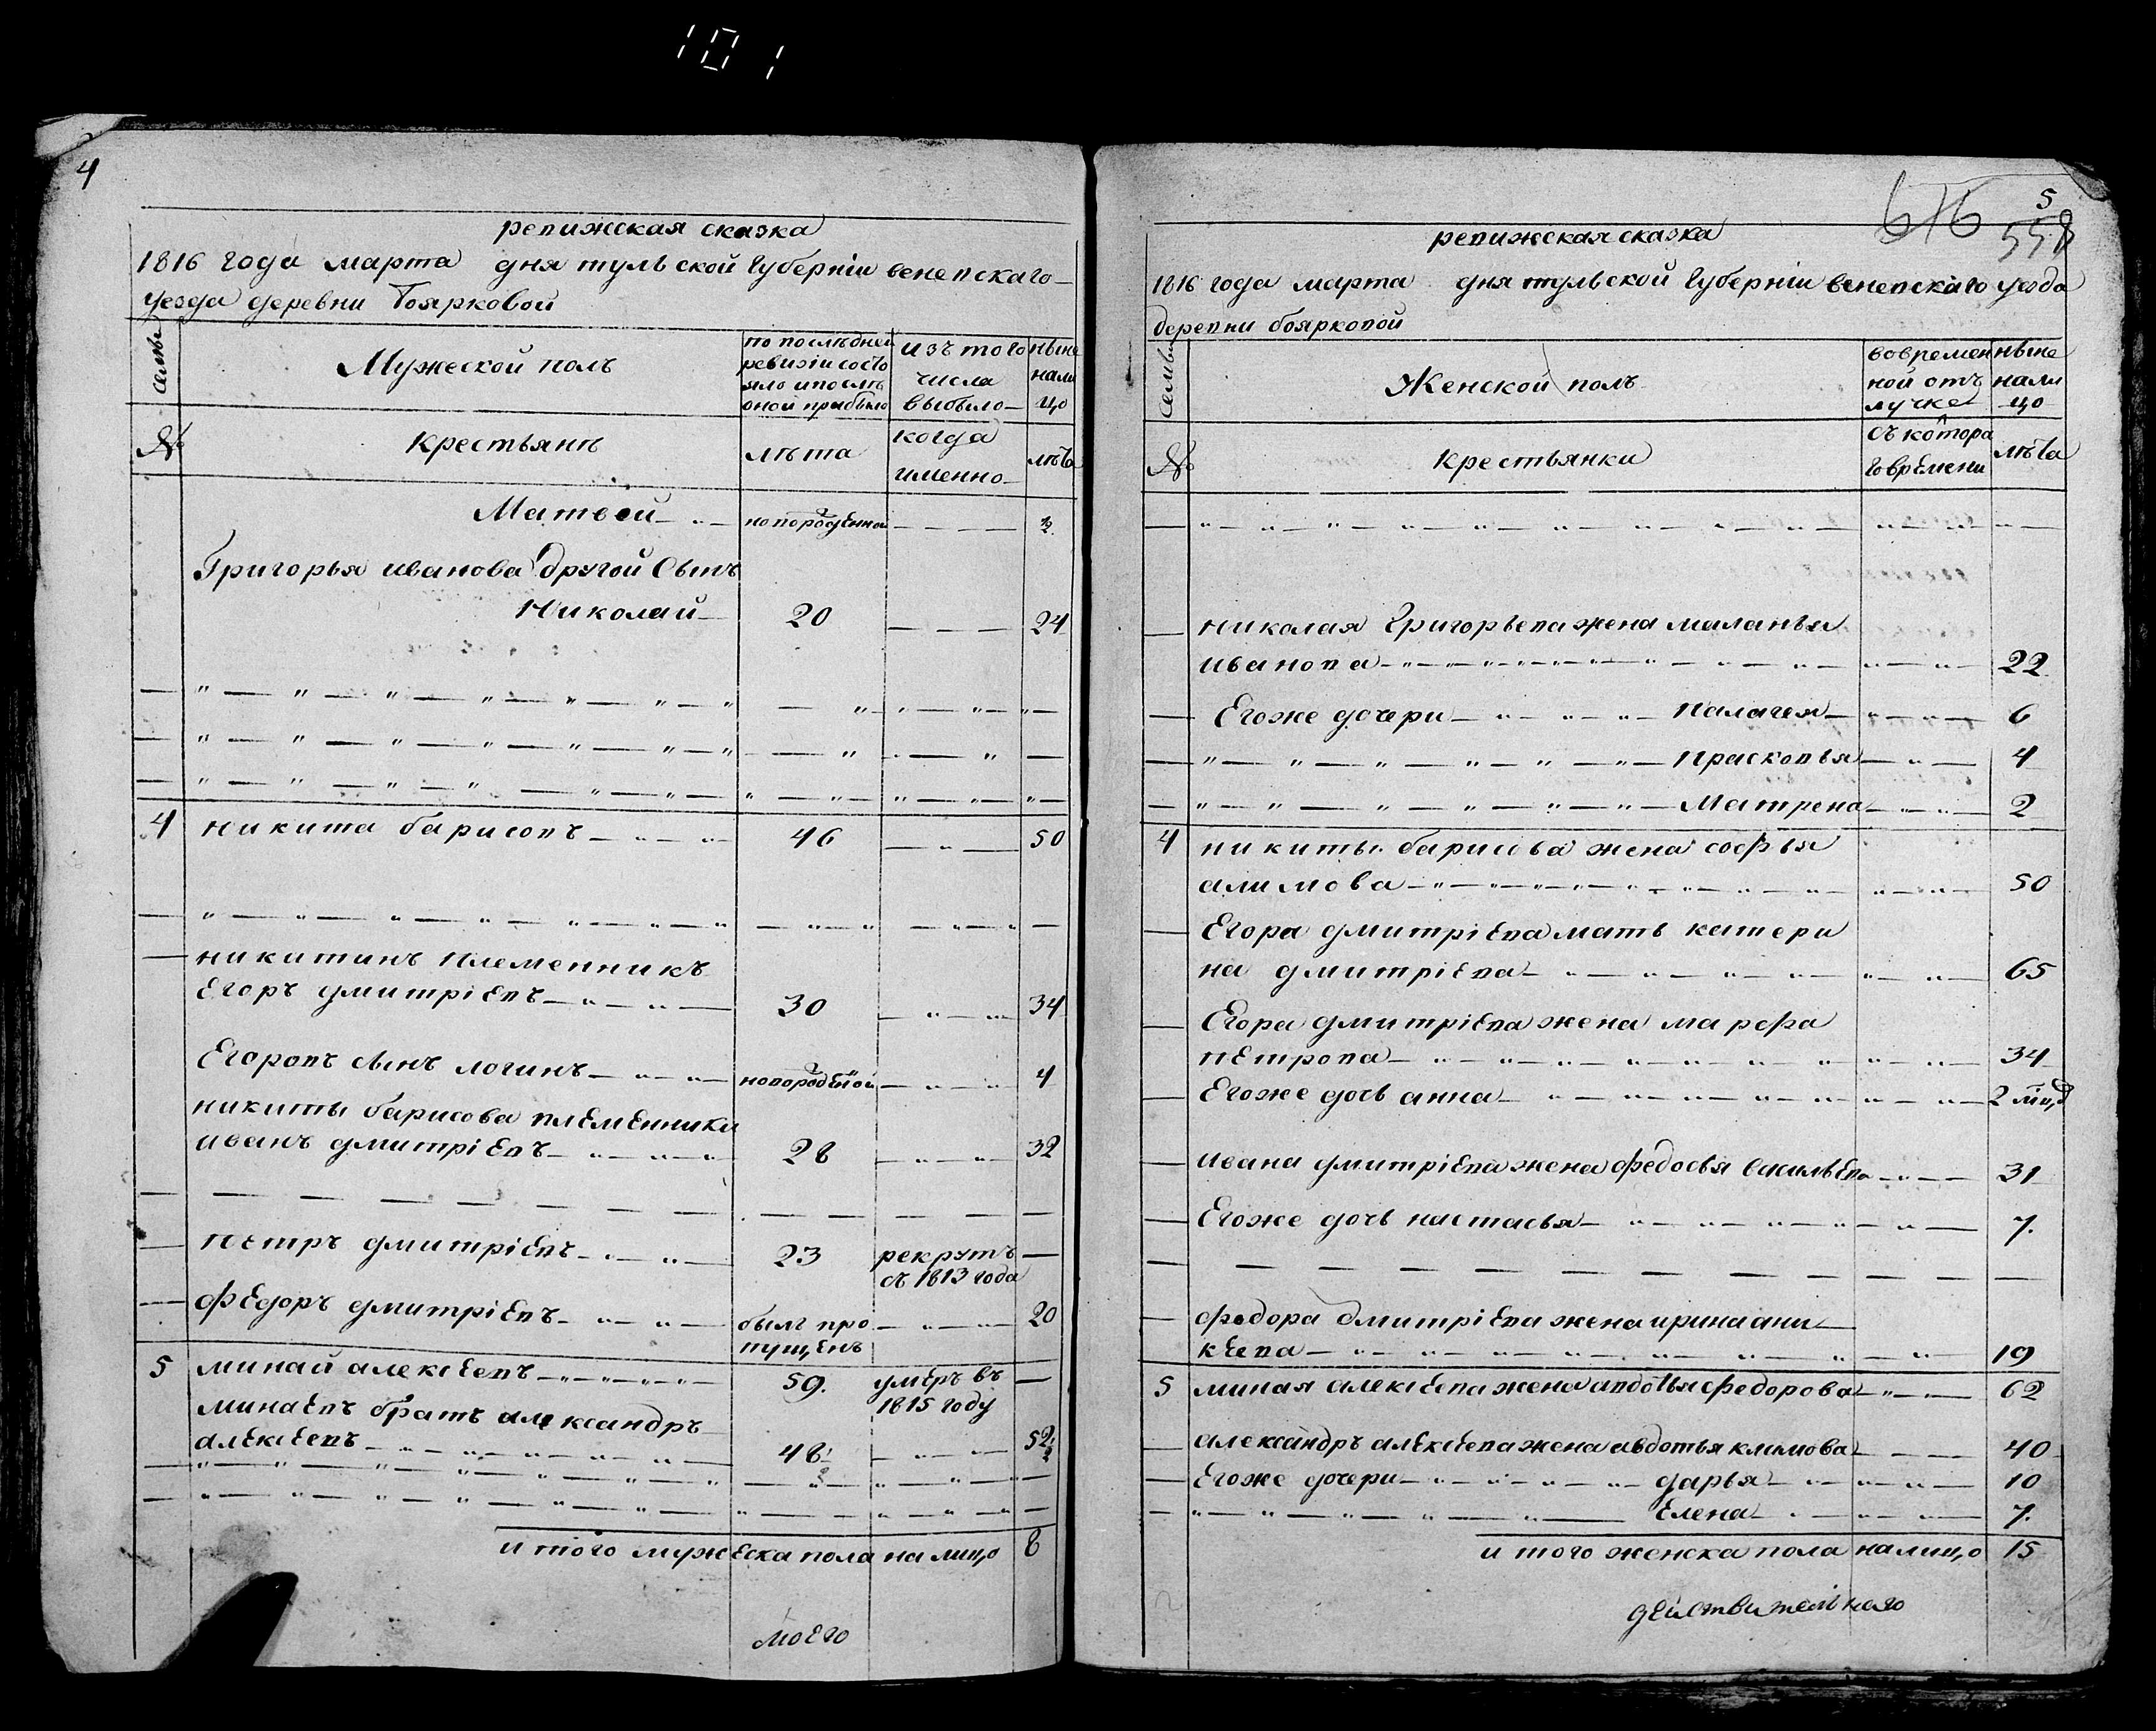 101
4
ревижская сказка
1816 года марта дня тульской губерніи веневскаго
уезда деревни Боярковой
семьи
Мужеской полъ
по последней
ревизіи состо
яло и после
оной прибыло
изъ того
числа
выбыло
ныне
нали
цо
№
крестьянъ
лѣта
когда
именно
лѣта
Матвей новорожденна
Григорья иванова другой сынъ
Николай 20 24
4 никита барисовъ 46 50
никитинъ племенникъ
Егоръ дмитріевъ 30 34
Егоровъ сынъ логинъ новорожденой 4
никиты барисова племенники
иванъ дмитріевъ 28 32
петръ дмитріевъ 23 рекрутъ
съ 1813 года
федоръ дмитріевъ былъ про 20
пущенъ
5 минай алексеевъ 59. умеръ въ
1815 году
минаевъ братъ александръ
алексеевъ 48 52
итого мужеска пола на лицо 8
моего
5
616
558
ревижская сказка
1816 года марта дня тульской губерніи веневскаго уезда
деревни боярковой
семьи
Женской полъ
вовремен
ной отъ
лучке
ныне
нали
цо
№
крестьянки
съ котора
го времени
лѣта
николая григорьева жена маланья
иванова 22
Егоже дочери палагея 6
прасковья 4
Матрена 2
4 никиты барисова жена софья
алимова 50
Егора дмитріева мать катери
на дмитріева 65
Егора дмитріева жена марфа
петрова 34
Егоже дочь анна 2 мцд
ивана дмитріева жена федосья васильева 31
Егоже дочь настасья 7.
федора дмитріева жена ирина ани
кеева 19
5 миная алексеева жена авдотья федорова 62
александръ алексеева жена авдотья климова 40
Егоже дочери дарья 10
Елена 7.
итого женска пола налицо 15
действительнаго